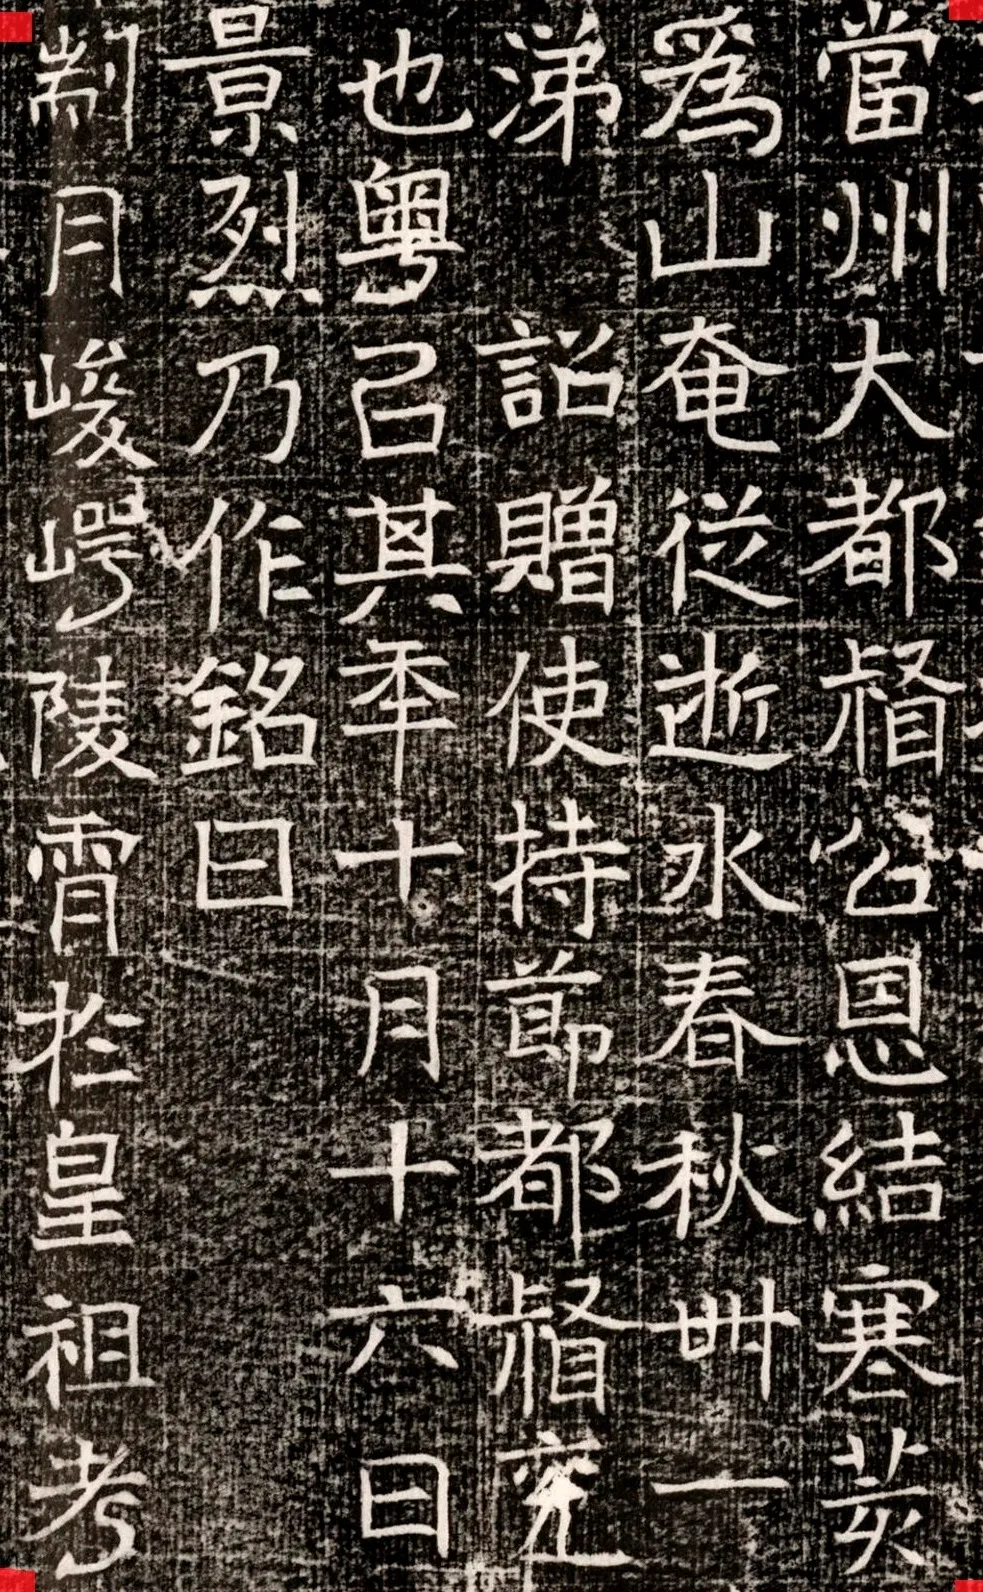 當州大都督公恩結寒荄
爲山奄從逝水春秋卌一
涕 詔贈使持節都督兗
也粵㠯其年十月十六日
景烈乃作銘曰
剬月峻崿陵霄於皇祖考